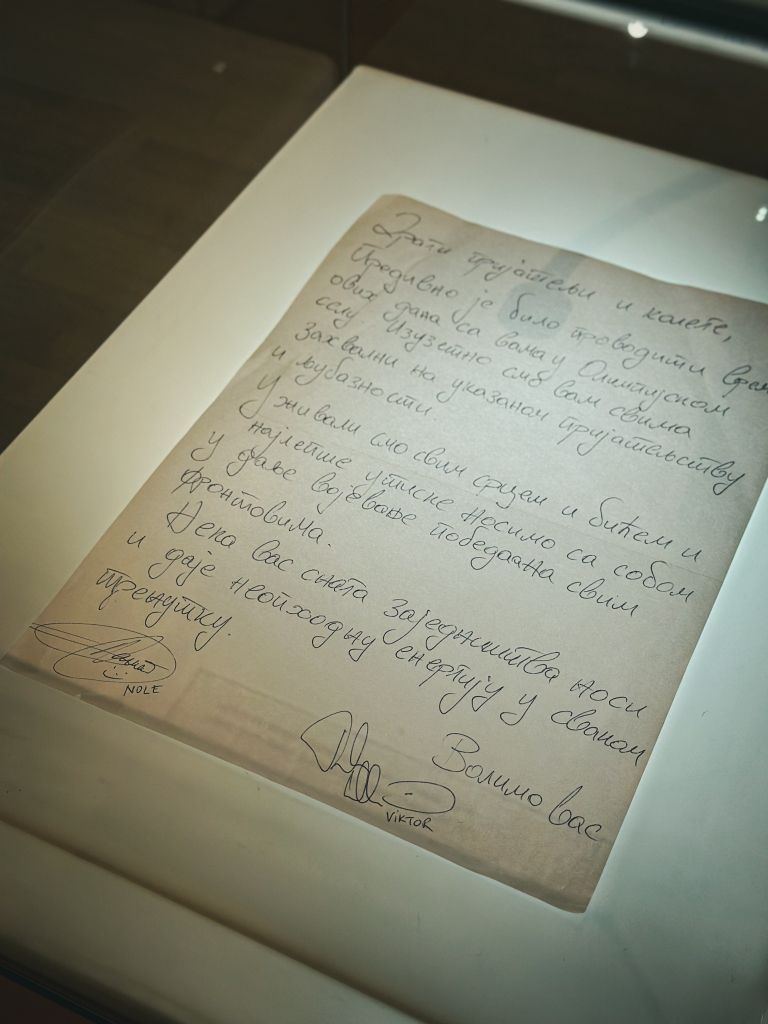 Драги пријатељи и колеге,
Предивно је било проводити врем
ових дана са вама у Олимпијском
селу. Изузетно смо вам свима
захвални на указаном пријатељству
и љубазности.
Уживали смо свим срцем и бићем и
најлепше утиске носимо са собом
у даље војевање победама свим
фронтовима.
Нека вас снага заједништва носи
и даје неопходну енергију у сваком
тренутку.
Волимо вас
NOLE
VIKTOR